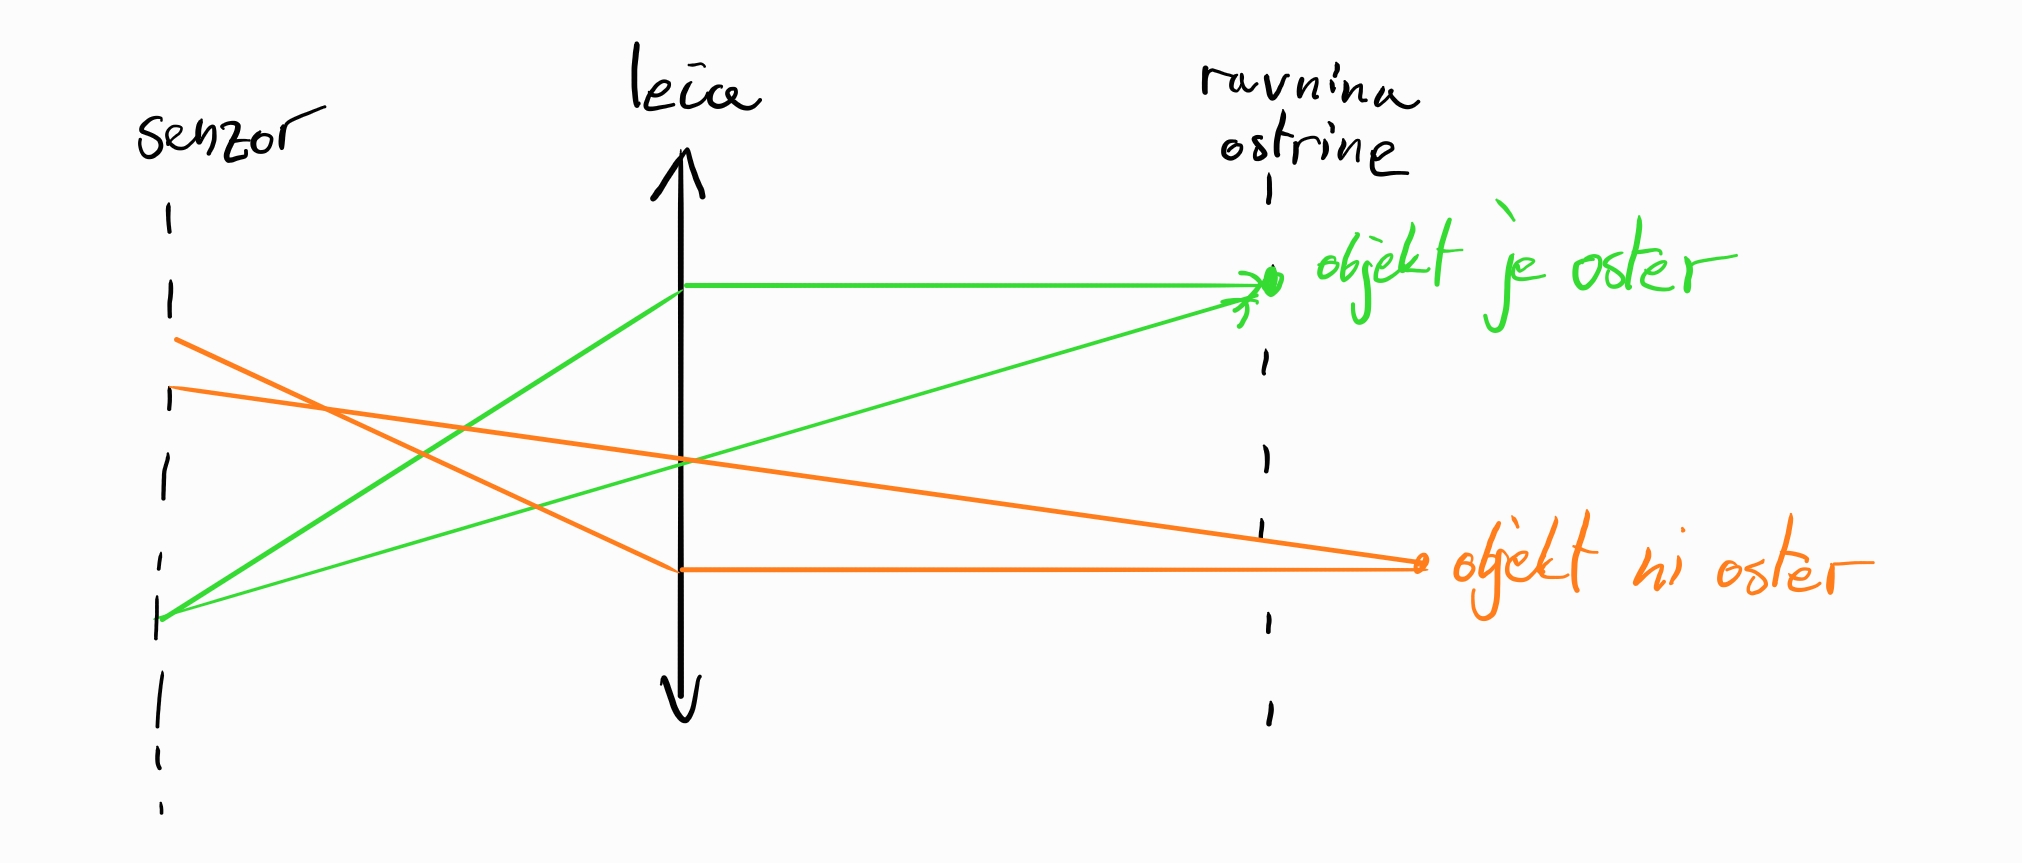 senzor
leča
ravnina
ostrine
objekt je oster
objekt ni oster